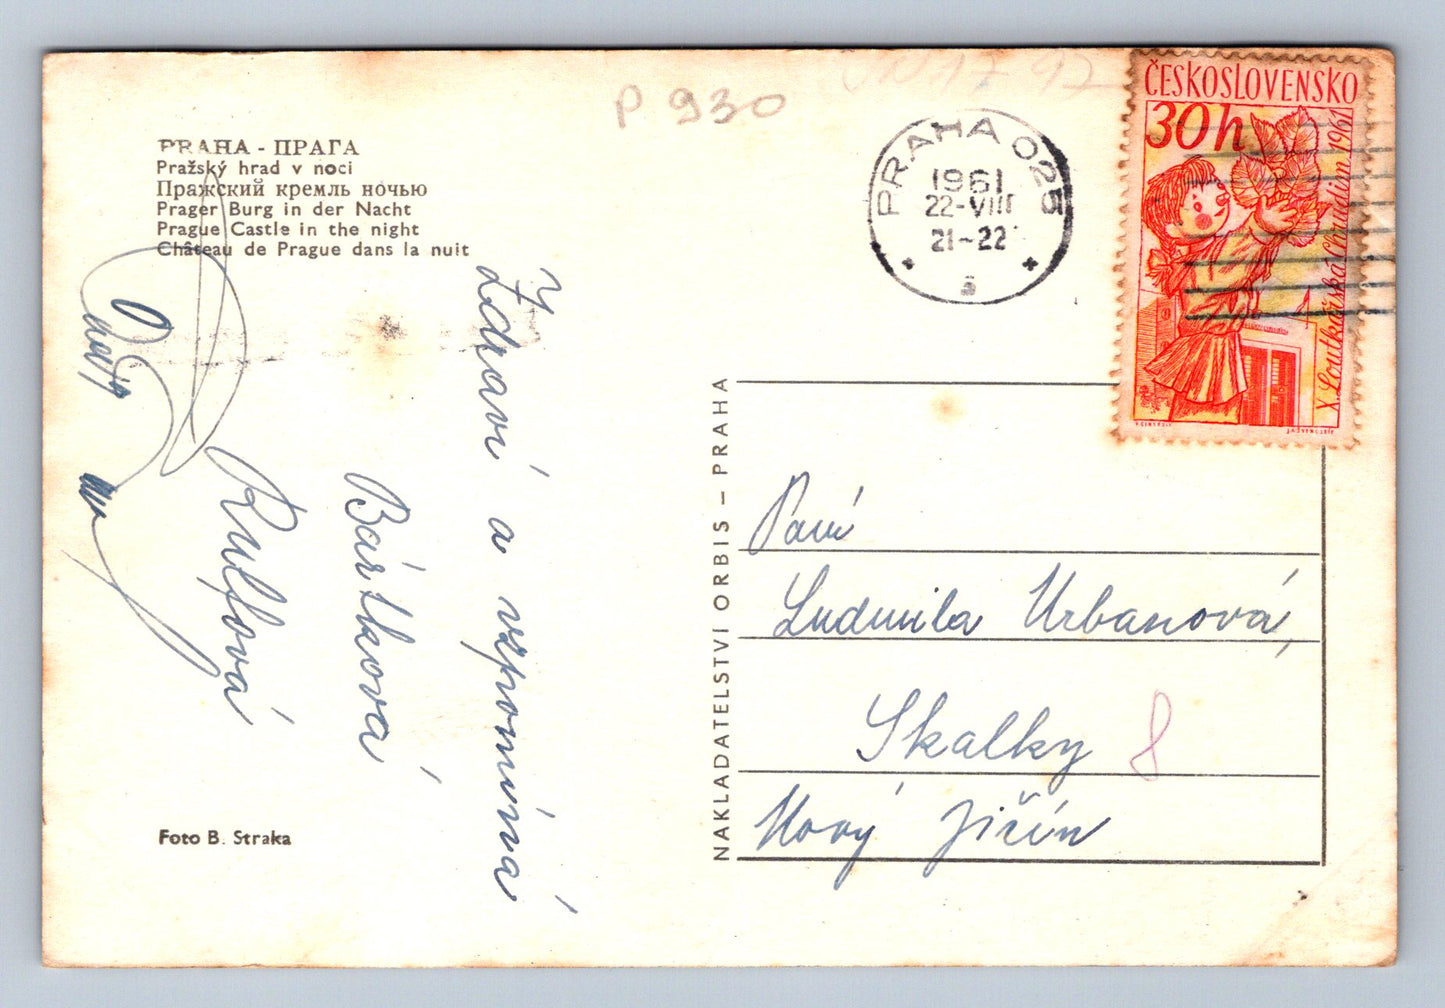 P 930
PRAHA - ПРАГА
Pražský hrad v noci
Пражский кремль ночью
Prager Burg in der Nacht
Prague Castle in the night
Château de Prague dans la nuit
PRAHA 025
1961
22-VIII
21-22
a
ČESKOSLOVENSKO
30h
X. Loutkářská Chrudim 1961
Zdraví a vzpomíná
Bártková
Rulfová
NAKLADATELSTVÍ ORBIS – PRAHA
Paní
Ludmila Urbanová,
Skalky 8
Nový Jičín
Foto B. Straka